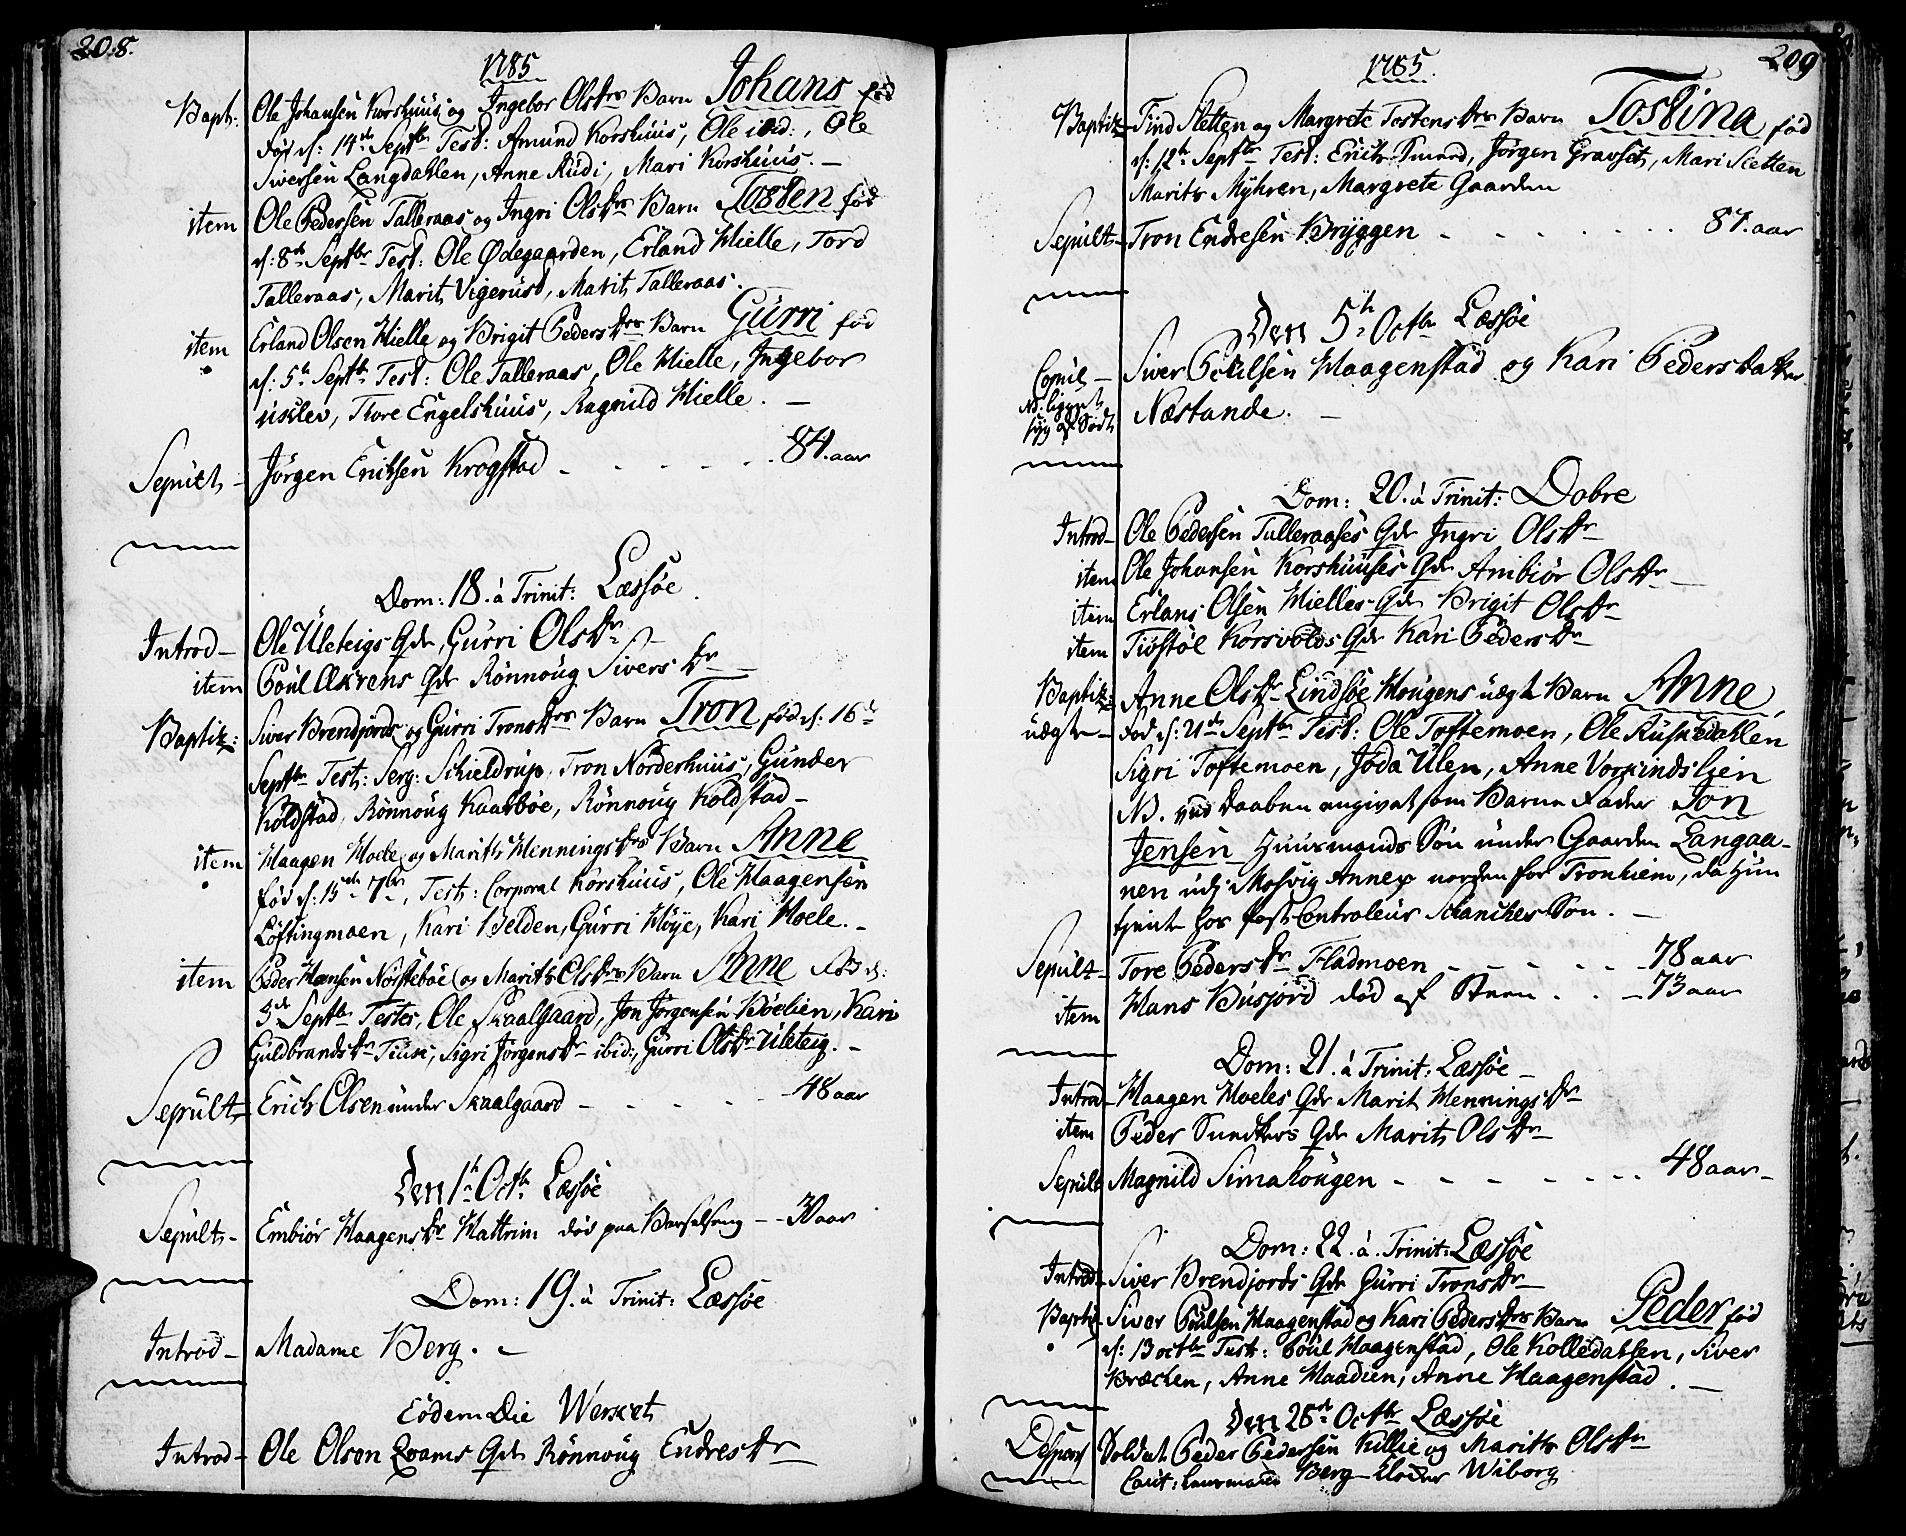 208.
1785
Bapt: Ole Johansen Korshuus og Ingebor Olsdrs Barn Johans fød
d: 14de Septbr Test: Amund Korshuus, Ole ibid:, Ole
Siversen Langdahlen, Anne Rudi, Mari Korshuus. —
item Ole Pedersen Talleraas og Ingri Olsdrs Barn Tosten fød
d: 8de Septbr Test: Ole Ødegaarden, Erland Hielle, Tord
Talleraas, Marit Vigerust, Marit Talleraas.
item Erland Olsen Hielle og Brigit Pedersdrs Barn Gurri fød
d: 5te Septb Test: Ole Talleraas, Ole Hielle, Ingebor
Tore Engelshuus, Ragnild Hielle. —
Sepult — Jørgen Erichsen Krogstad - - - - - 84. aar
Dom: 18. à Trinit: Læssøe.
Introd — Ole Uleteigs Qde, Gurri Olsdr
item Poul Ækrens Qde Rønnoug Siversdr —
Baptiz: Siver Brendjords og Gurri Tronsdrs Barn Tron fød d: 16de
Septbr Test: Serg: Schieldrup, Tron Norderhuus, Gunder
Koldstad, Rønnoug Kaarbøe, Rønnoug Koldstad —
item Haagen Hoele og Marith Henningsdrs Barn Anne
fød d: 15de 7br, Test: Corporal Korshuus, Ole Haagensen
Løftingmoen, Kari Belden, Gurri Høye, Kari Hoele. -
item Peder Hansen Norstebøe og Marith Olsdrs Barn Anne fød d:
5de Septbr Testes, Ole Skaalgaard, Jon Jørgensen Bøelien, Kari
Guldbrandsdr Tiusn, Sigri Jørgensdr ibid:, Gurri Olsdr Uleteig. -
Sepult — Erich Olsen under Skaalgaard - - - - - 48 aar
Den 1te Octbr Læssøe
Sepult - Embiør Haagensdr Hattrim død paa Barselseng - - 30 aar
Dom: 19. à Trinit: Læssøe
Introd — Madame Berg. -
Eodem Die Werket
Introd - Ole Olsen Qvams Qde Rønnoug Endresdr
209
1785.
Baptiz Find Sletten og Margrete Tostensdrs Barn Tostina fød
d: 12te Septbr Test: Erich Smed, Jørgen Gravset, Mari Sletten
Marith Myhren, Margrete Gaarden
Sepult — Tron Endresen Bryggen - - - - - - - 87. aar
Den 5te Octbr Læssøe
Copul — Siver Poulsen Haagenstad og Kari Pedersdatter
Næstande. —
NB: ligget
syg af
Dom: 20. à Trinit: Dobre
Introd — Ole Pedersen Talleraases Qde Ingri Olsdr
item Ole Johansen Korshuuses Qde Ambiør Olsdr —
item Erlans Olsen Hielles Qde Brigit Olsdr
item Tiøstøl Korsvolds Qde Kari Pedersdr
Baptiz: Anne Olsdr Lindsøe Hougens uægte Barn Anne,
uægte — fød d: 21de Septbr Test: Ole Toftemoen, Ole Rusnedahlen
Sigri Toftemoen, Joda Ulen, Anne Vorkindslien
NB. ved Daaben angivet som Barne Fader Jon
Jensen Huusmands Søn under Gaarden Langaa-
nen udj Mosvig Annex norden for Tronhiem, da hun
tjente hos Controleur Schanches Søn. —
Sepult — Tore Pedersdr Fladmoen - - - - - 78 aar
item Hans Busjord død af Steen . . - 73 aar
Dom: 21. à Trinit: Læssøe —
Introd — Haagen Hoeles Qde Marit Henningsdr
item Peder Sundters Qde Marith Olsdr
Sepult Magnild Simahougen - - - - - - - 48 aar -
Dom: 22. à. Trinit: Læssøe
Introd - Siver Brendjords Qde Gurri Tronsdr
Baptiz Siver Poulsen Haagenstad og Kari Pedersdrs Barn Peder fød
d: 13 octbr Test: Poul Haagenstad, Ole Kolledahlen, Siver
Bræchen, Anne Haadien, Anne Haagenstad. —
Den 28de Octbr Læssøe
Despons Soldat Peder Pedersen Killie og Marith Olsdr
Caut: Berg Wiborg